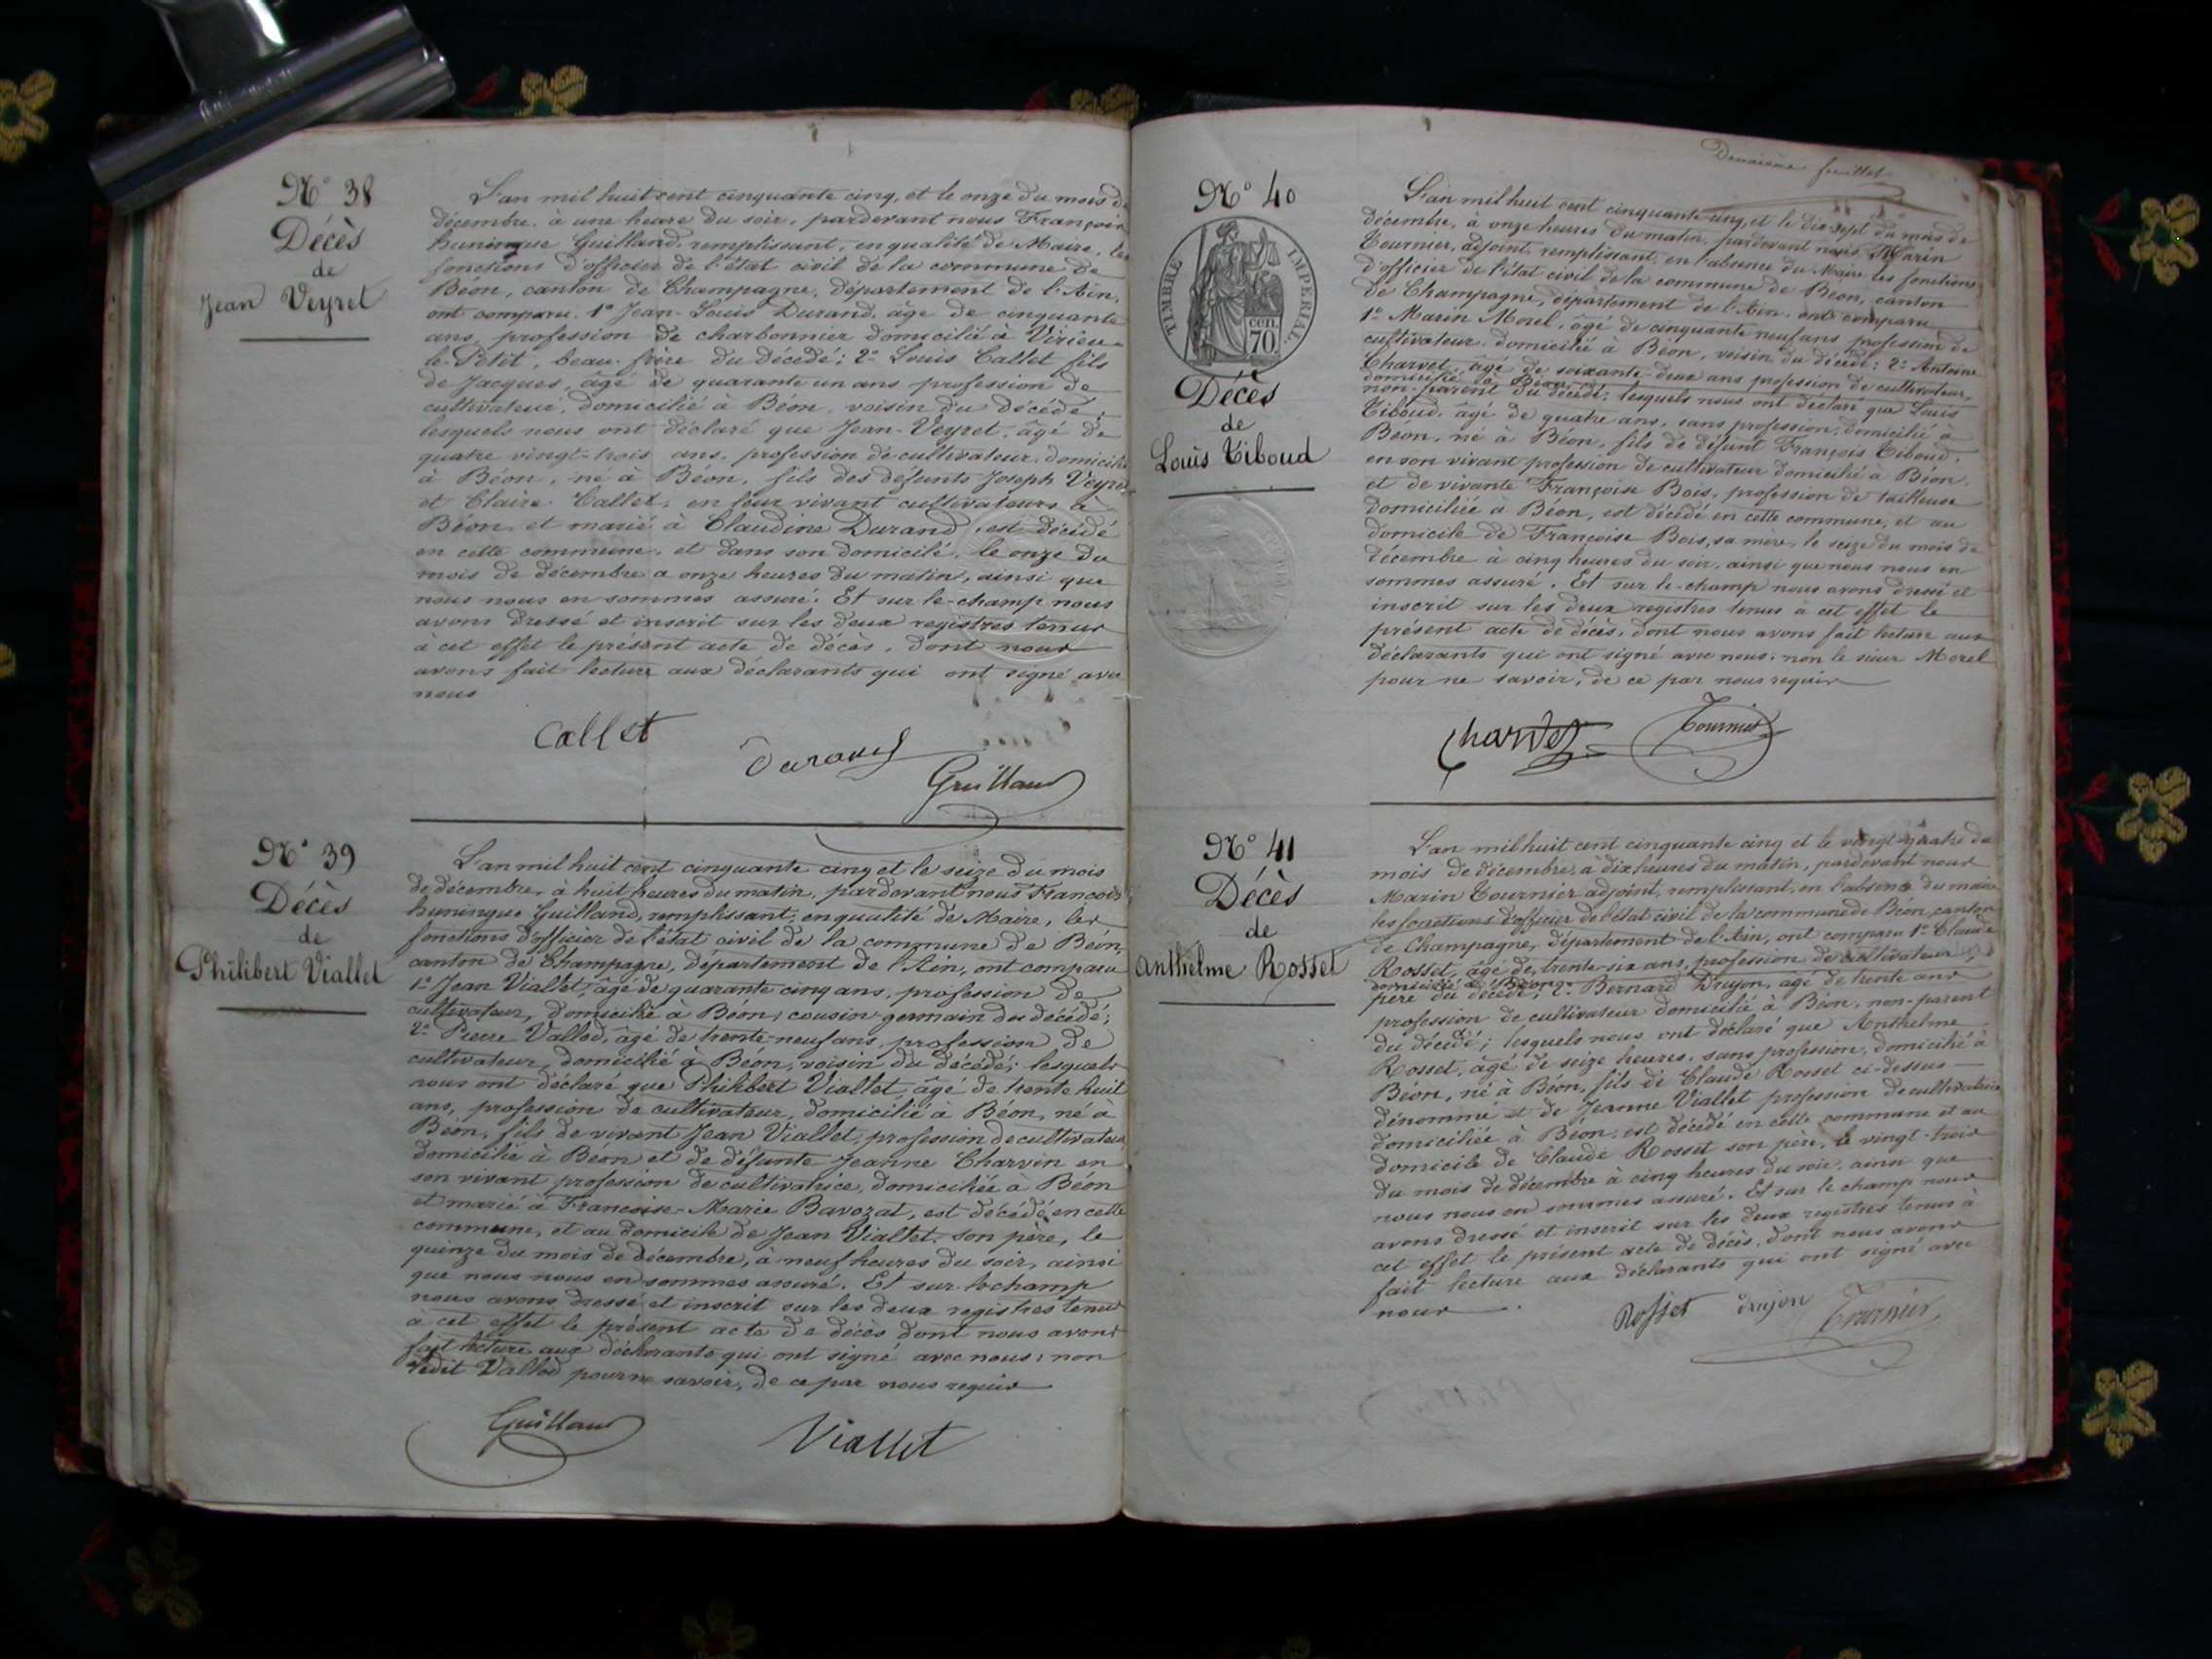 N° 38
Décès
de
Jean Veyret
L'an mil huit cent cinquante cinq, et le onze du mois de
décembre, à une heure du soir, pardevant nous François
huningue Guilland, remplissant, en qualité de Maire, les
fonctions d'officier de l'état civil de la commune de
Béon, canton de Champagne, département de l'Ain,
ont comparu 1° Jean-Louis Durand, âgé de cinquante
ans, profession de charbonnier domicilié à Virieu-
le-Petit, beau-frère du décédé; 2° Louis Callet fils
de Jacques, âgé de quarante un ans profession de
cultivateur, domicilié à Béon, voisin du décédé;
lesquels nous ont déclaré que Jean-Veyret, âgé de
quatre vingt-trois ans, profession de cultivateur, domicilié
à Béon, né à Béon, fils des défunts Joseph Veyret
et Claire Callet, en leur vivant cultivateurs à
Béon, et marié à Claudine Durand, est décédé
en cette commune, et dans son domicile, le onze du
mois de décembre à onze heures du matin, ainsi que
nous nous en sommes assuré. Et sur le-champ nous
avons dressé et inscrit sur les deux registres tenus
à cet effet le présent acte de décès, dont nous
avons fait lecture aux déclarants qui ont signé avec
nous
Callet
Durand
Guilland
N° 39
Décès
de
Philibert Viallet
L'an mil huit cent cinquante cinq et le seize du mois
de décembre, à huit heures du matin, pardevant nous François
huningue Guilland, remplissant, en qualité de Maire, les
fonctions d'officier de l'état civil de la commune de Béon,
canton de Champagne, département de l'Ain, ont comparu
1° Jean Viallet, âgé de quarante cinq ans, profession de
cultivateur, domicilié à Béon, cousin-germain du décédé;
2° Pierre Vallod, âgé de trente-neuf ans, profession de
cultivateur, domicilié à Béon, voisin du décédé; lesquels
nous ont déclaré que Philibert Viallet, âgé de trente huit
ans, profession de cultivateur, domicilié à Béon, né à
Béon, fils de vivant Jean Viallet, profession de cultivateur
domicilié à Béon et de défunte Jeanne Charvin en
son vivant profession de cultivatrice, domiciliée à Béon
et marié à Françoise-Marie Bavozat, est décédé en cette
commune, et au domicile de Jean Viallet, son père, le
quinze du mois de décembre, à neuf heures du soir, ainsi
que nous nous en sommes assuré. Et sur-le champ
nous avons dressé et inscrit sur les deux registres tenus
à cet effet le présent acte de décès dont nous avons
fait lecture aux déclarants qui ont signé avec nous, non
ledit Vallod pour ne savoir, de ce par nous requis
Guilland
Viallet
Deuxième feuillet
N° 40
TIMBRE IMPERIAL
cen.
70.
Décès
de
Louis Tiboud
L'an mil huit cent cinquante-cinq, et le dix-sept du mois de
décembre, à onze heures du matin, pardevant nous Marin
Tournier, adjoint, remplissant en l'absence du Maire les fonctions
d'officier de l'état civil de la commune de Béon, canton
de Champagne, département de l'Ain, ont comparu
1° Marin Morel, âgé de cinquante neuf ans profession de
cultivateur, domicilié à Béon, voisin du décédé; 2° Antoine
Charvet, âgé de soixante-deux ans profession de cultivateur,
domicilié à Béon,
non-parent du décédé; lesquels nous ont déclaré que Louis
Tiboud, âgé de quatre ans, sans profession, domicilié à
Béon, né à Béon, fils de défunt François Tiboud,
en son vivant profession de cultivateur domicilié à Béon,
et de vivante Françoise Bois, profession de tailleuse
domiciliée à Béon, est décédé en cette commune, et au
domicile de Françoise Bois, sa mère, le seize du mois de
décembre à cinq heures du soir, ainsi que nous nous en
sommes assuré. Et sur le-champ nous avons dressé et
inscrit sur les deux registres tenus à cet effet le
présent acte de décès, dont nous avons fait lecture aux
déclarants qui ont signé avec nous, non le sieur Morel
pour ne savoir, de ce par nous requis
Charvet
Tournier
N° 41
Décès
de
Anthelme Rosset
L'an mil huit cent cinquante cinq et le vingt-quatre du
mois de décembre, à dix heures du matin, pardevant nous
Marin Tournier adjoint, remplissant, en l'absence du maire
les fonctions d'officier de l'état civil de la commune de Béon, canton
de Champagne, département de l'Ain, ont comparu 1° Claude
Rosset, âgé de trente-six ans, profession de cultivateur,
domicilié à Béon,
père du décédé; 2° Bernard Drujon, âgé de trente ans
profession de cultivateur domicilié à Béon, non-parent
du décédé; lesquels nous ont déclaré que Anthelme
Rosset, âgé de seize heures, sans profession, domicilié à
Béon, né à Béon, fils de Claude Rosset ci-dessus
dénommé et de Jeanne Viallet profession de cultivatrice
domiciliée à Béon, est décédé en cette commune et au
domicile de Claude Rosset son père, le vingt-trois
du mois de décembre à cinq heures du soir, ainsi que
nous nous en sommes assuré. Et sur le champ nous
avons dressé et inscrit sur les deux registres tenus à
cet effet le présent acte de décès, dont nous avons
fait lecture aux déclarants qui ont signé avec
nous
Rosset
Drujon
Tournier